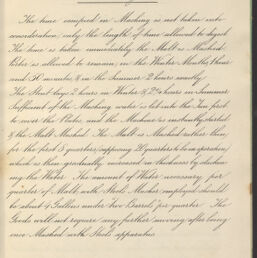 The time occupied in Mashing is not taken into
consideration, only the length of time allowed to digest
The time is taken immediately the Malt is Mashed.
is allowed to remain, in the Winter Months, 1 hour
and 30 minutes & in the Summer 2 hours exactly
The Stout lays 2 hours in Winter & 2½ hours in Summer
Sufficient of the Mashing water is let into the Tun first
to cover the Plates and the Machine is instantly started
& the Malt Mashed. The Malt is Mashed rather thin
for the first 8 quarters (supposing 20 quarters to be in operation)
which is then gradually increased in thickness by slacken-
ing the Water. The amount of Water necessary per
quarter of Malt, with Steels Masher employed should
be about 4 Gallons under Two Barrels per quarter. The
Goods will not require any further moving after being
once Mashed with Steels apparatus.